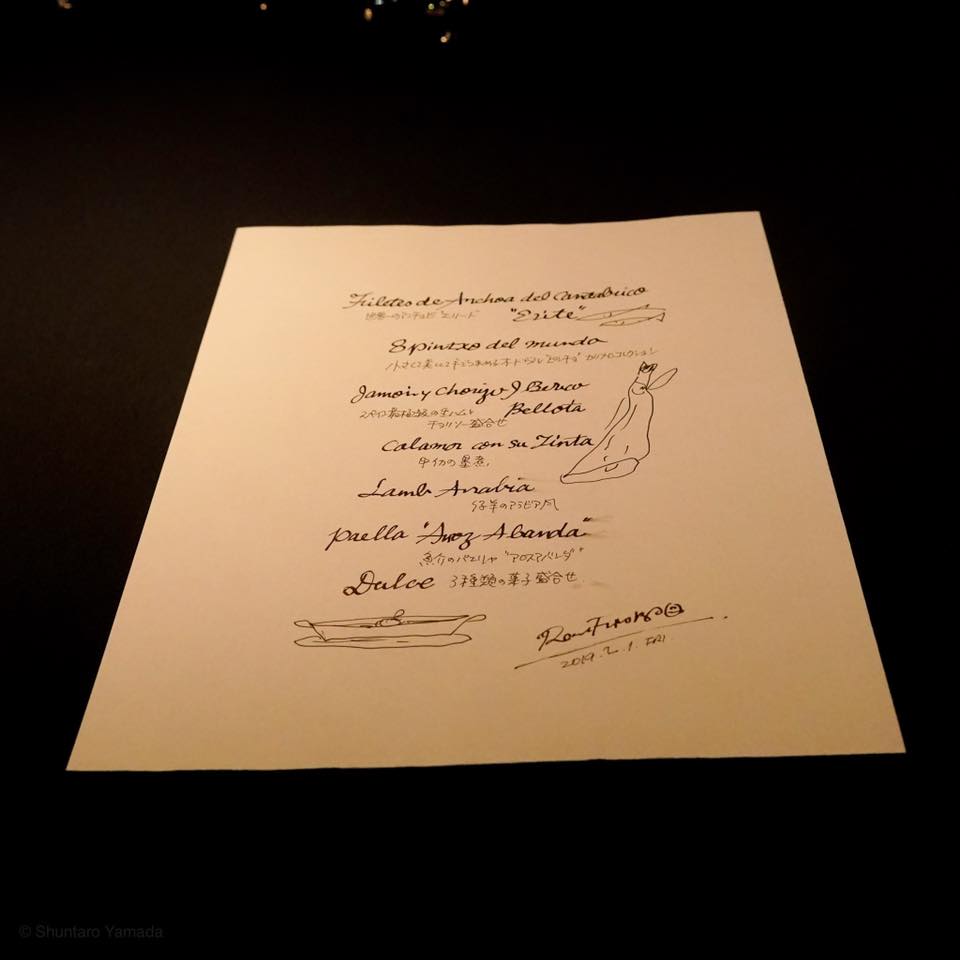 Filetes de Anchoa del Cantabrico
世界一のアンチョビ "エリート" "Erite"
8 pintxo del mundo
小さくて美しくて手でつまめるオードブル "ピンチョ" コレクション
Jamon y Chorizo Iberico
スペイン最極級の生ハムと Bellota
チョリソー盛合せ
Calamar con su Tinta
甲イカの墨煮.
Lamb Arabia
仔羊のアラビア風
Paella "Arroz Abanda"
魚介のパエリャ "アロスアバンダ"
Dulce 3種類の菓子盛合せ
2019.2.1. FRI.
© Shuntaro Yamada